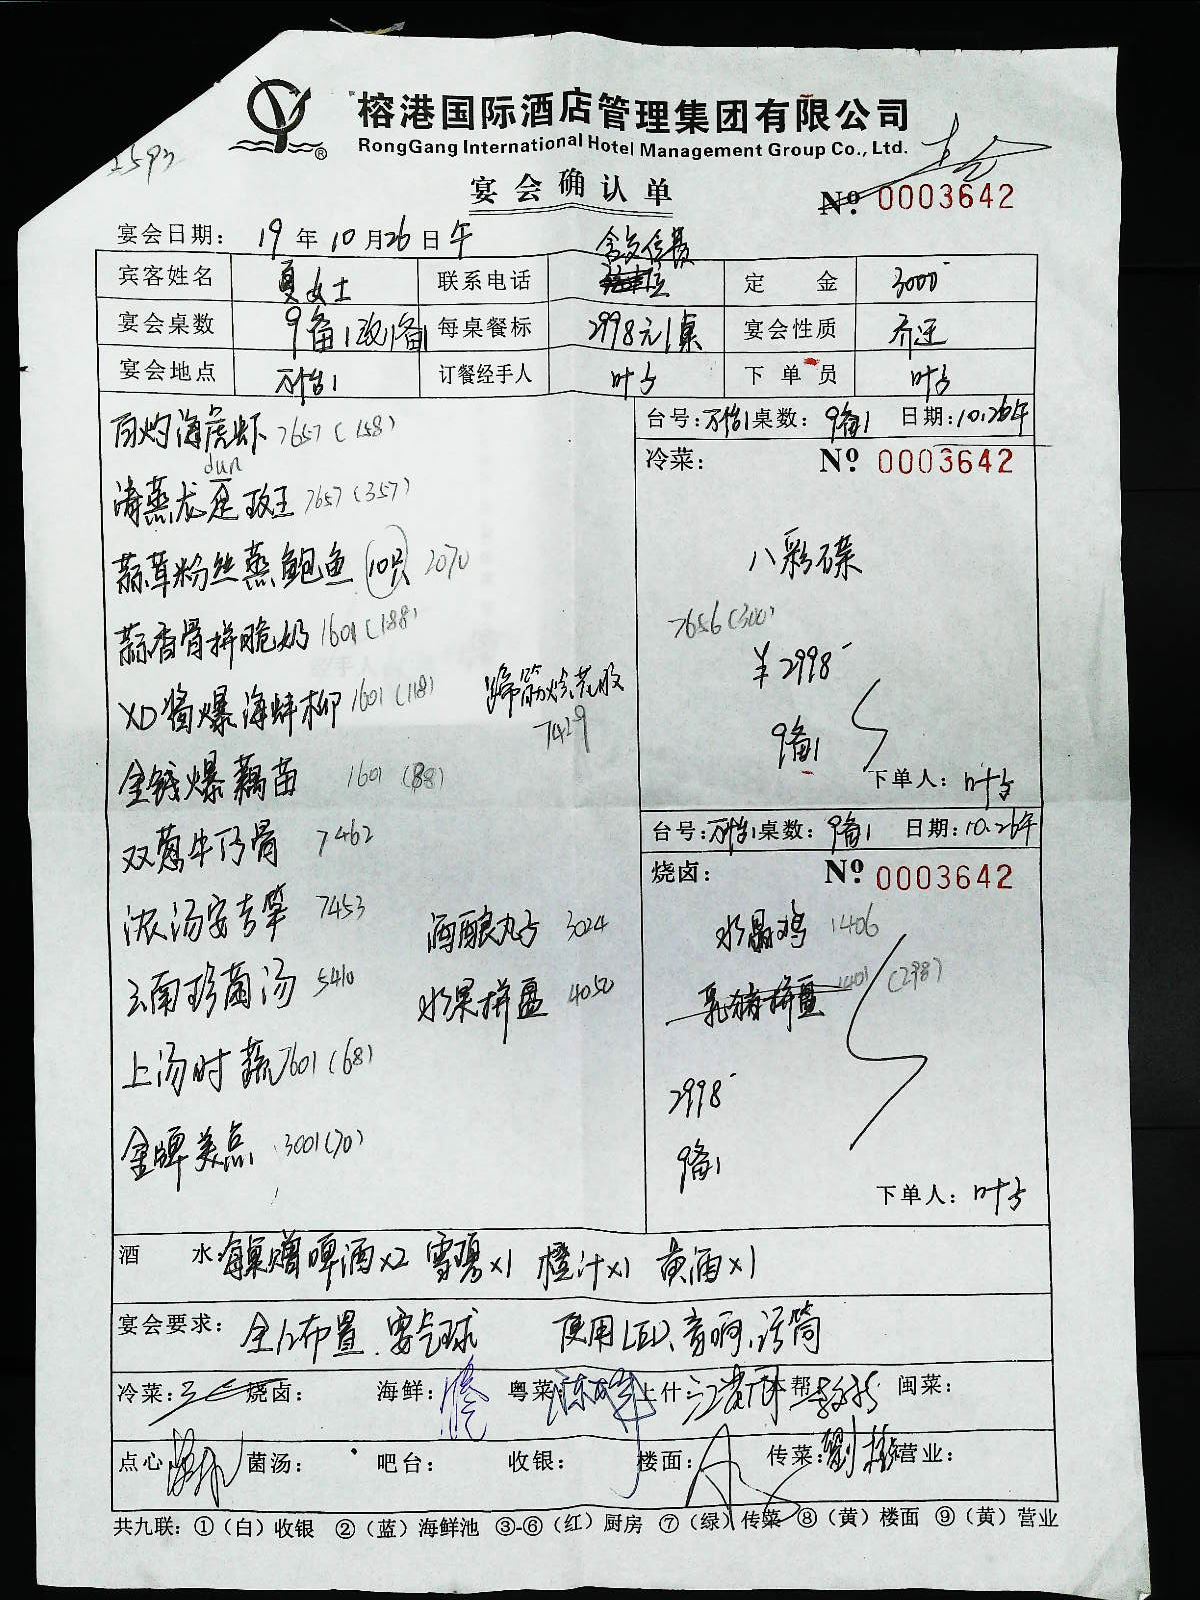 榕港国际酒店管理集团有限公司
RongGang International Hotel Management Group Co., Ltd.
宴会确认单
No 0003642
宴会日期: 19年10月26日午
宾客姓名 夏女士 联系电话 定金 3000
宴会桌数 9备1 每桌餐标 2998元/桌 宴会性质 乔迁
宴会地点 万怡1 订餐经手人 叶子 下单员 叶子
台号:万怡1 桌数:9备1 日期:10.26午
白灼海虎虾 7657(158)
冷菜: No 0003642
dun
清蒸龙趸斑王 7657(357)
蒜茸粉丝蒸鲍鱼 10只 2070
八彩碟
7656(300)
蒜香骨拼脆奶 1601(188)
¥2998
XO酱爆海蚌柳 1601(118) 蹄筋烧花胶
7429
9备1
金钱爆藕苗 1601(88)
下单人:叶子
台号:万怡1 桌数:9备1 日期:10.26午
双葱牛仔骨 7462
烧卤: No 0003642
浓汤安吉笋 7453 酒酿丸子 3024
水晶鸡 1406
云南珍菌汤 5410 水果拼盘 4050
乳猪拼盘 1401(298)
上汤时蔬 7601(68)
2998
金牌美点 3001(70)
9备1
下单人:叶子
酒水:每桌赠啤酒x2 雪碧x1 橙汁x1 黄酒x1
宴会要求: 全红布置.要气球 使用LED、音响、话筒
冷菜: 烧卤: 海鲜: 粤菜: 上什: 帮: 闽菜:
点心: 菌汤: 吧台: 收银: 楼面: 传菜: 营业:
共九联:①(白)收银 ②(蓝)海鲜池 ③-⑥(红)厨房 ⑦(绿)传菜 ⑧(黄)楼面 ⑨(黄)营业